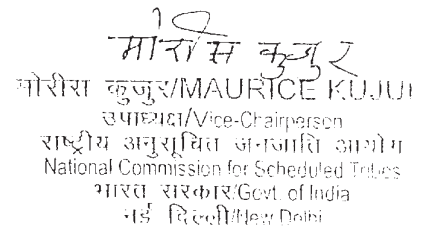 मोरीस कुजुर
मोरीस कुजुर/MAURICE KUJUR
उपाध्यक्ष/Vice-Chairperson
राष्ट्रीय अनुसूचित जनजाति आयोग
National Commission for Scheduled Tribes
भारत सरकार/Govt. of India
नई दिल्ली/New Delhi